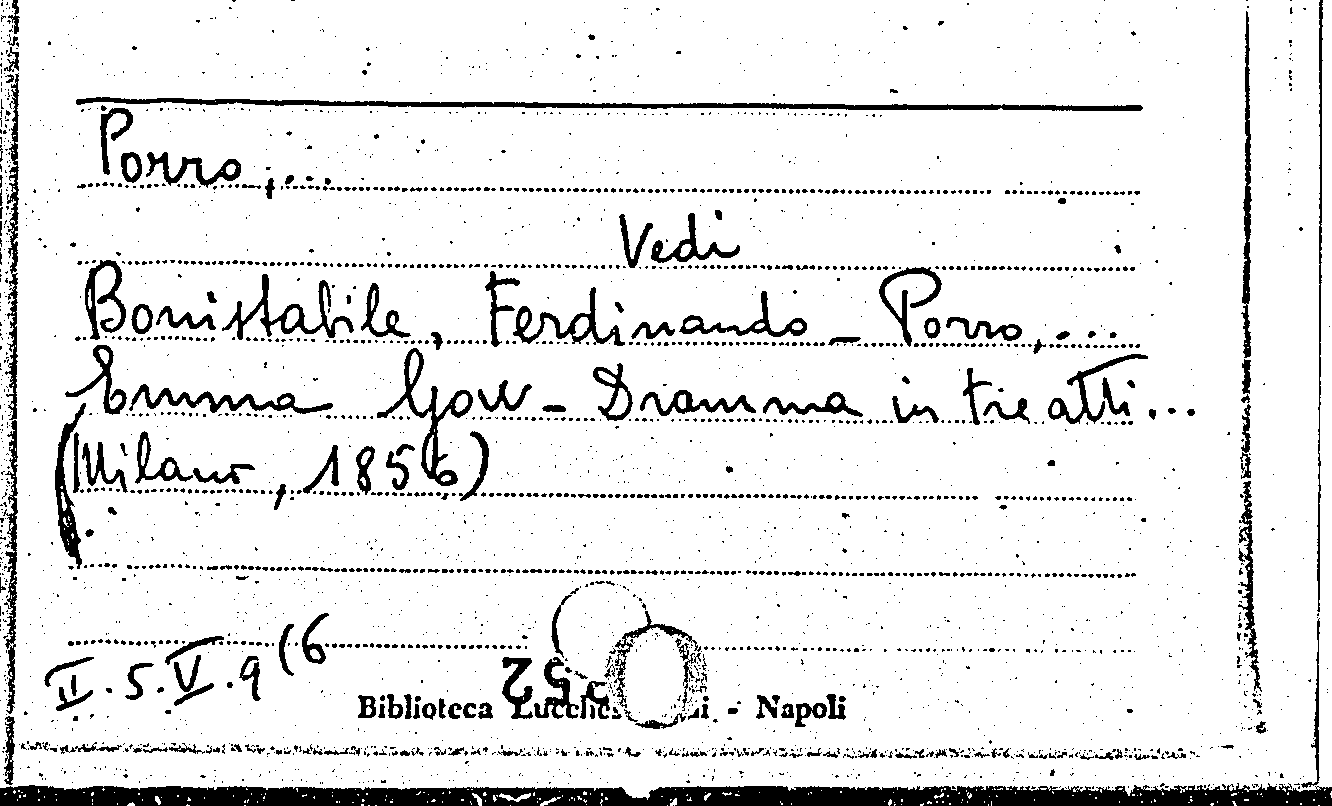 Porro,...
Vedi
Bonistabile, Ferdinando - Porro,...
Emma Gow - Dramma in tre atti...
(Milano, 1856)
II.5.V.9(6
Biblioteca - Napoli